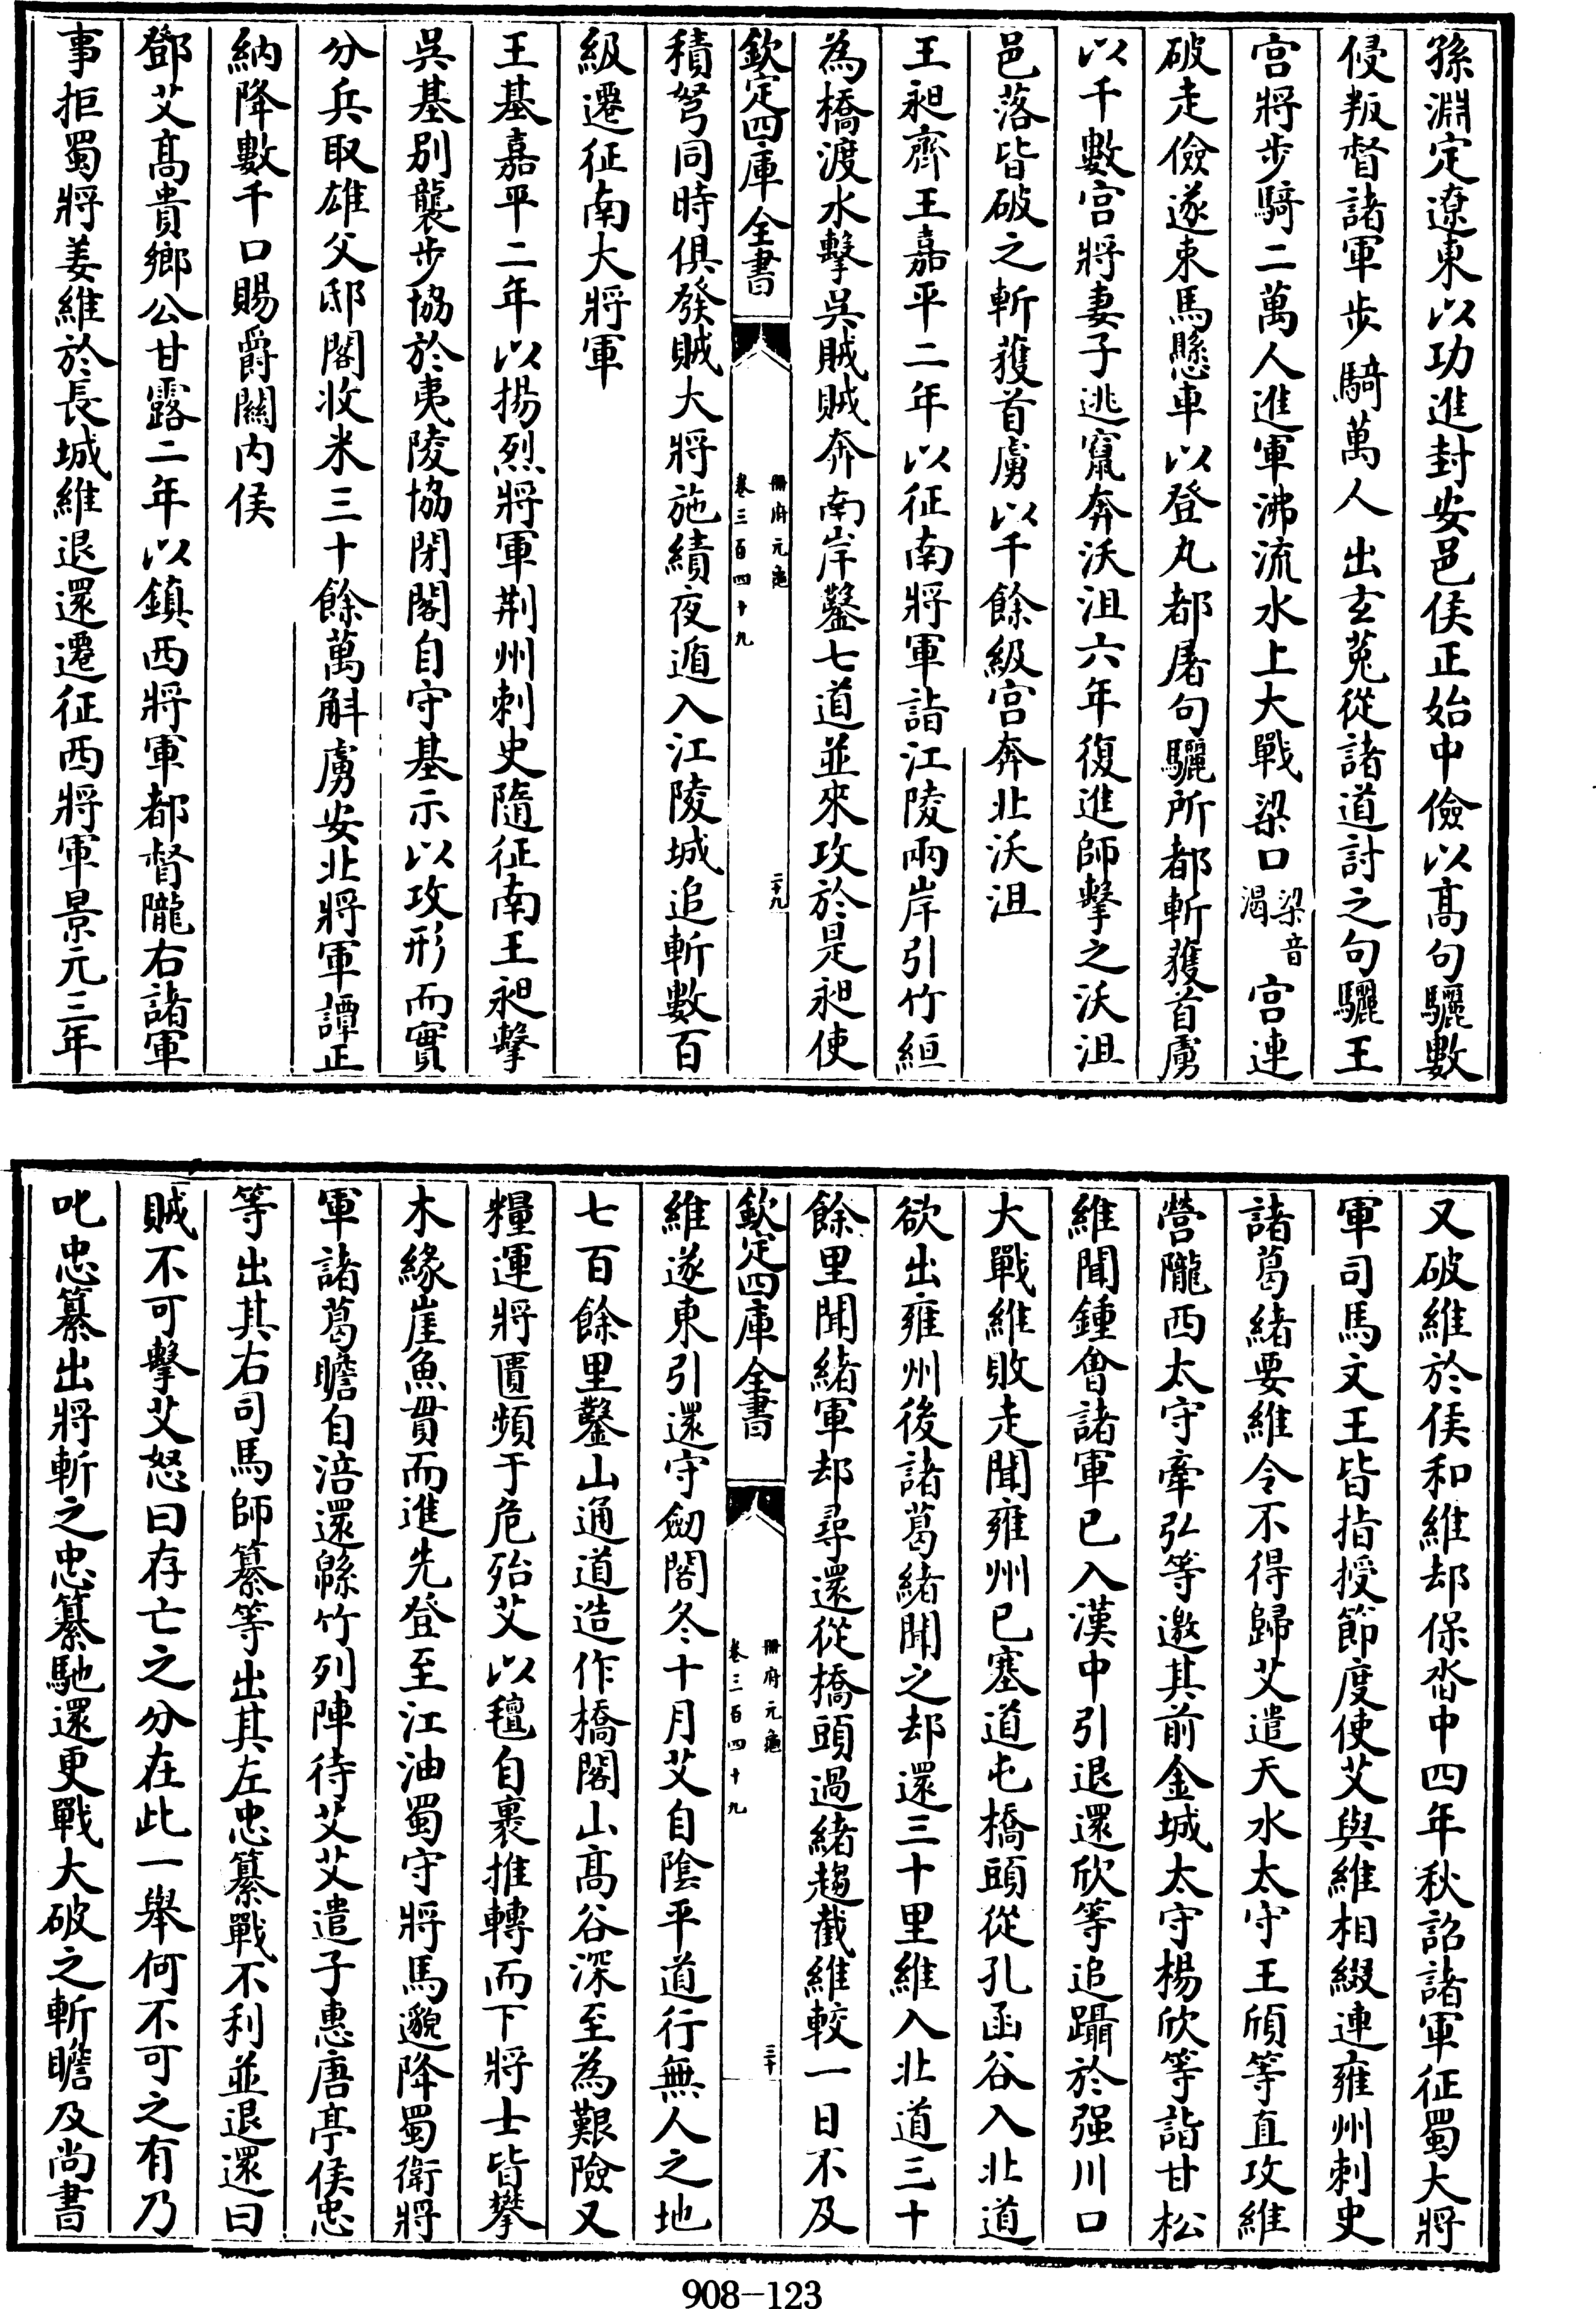 孫淵定遼東以功進封安邑侯正始中儉以高句驪數
侵叛督諸軍步騎萬人出玄菟從諸道討之句驪王
宫將步騎二萬人進軍沸流水上大戰梁口梁音渴宫連
破走儉遂束馬懸車以登丸都屠句驪所都斬獲首虜
以千數宫將妻子逃竄奔沃沮六年復進師擊之沃沮
邑落皆破之斬獲首虜以千餘級宫奔北沃沮
王昶齊王嘉平二年以征南將軍詣江陵兩岸引竹絙
為橋渡水擊吳賊賊奔南岸鑿七道並來攻於是昶使
欽定四庫全書
冊府元龜
卷三百四十九
二十九
積弩同時俱發賊大將施績夜遁入江陵城追斬數百
級遷征南大將軍
王基嘉平二年以揚烈將軍荆州刺史隨征南王昶擊
吳基别襲步協於夷陵協閉閣自守基示以攻形而實
分兵取雄父邸閣收米三十餘萬斛虜安北將軍譚正
納降數千口賜爵關内侯
鄧艾高貴鄉公甘露二年以鎮西將軍都督隴右諸軍
事拒蜀將姜維於長城維退還遷征西將軍景元三年
又破維於侯和維却保沓中四年秋詔諸軍征蜀大將
軍司馬文王皆指授節度使艾與維相綴連雍州刺史
諸葛緒要維令不得歸艾遣天水太守王頎等直攻維
營隴西太守牽弘等邀其前金城太守楊欣等詣甘松
維聞鍾會諸軍已入漢中引退還欣等追躡於强川口
大戰維敗走聞雍州已塞道屯橋頭從孔函谷入北道
欲出雍州後諸葛緒聞之却還三十里維入北道三十
餘里聞緒軍却尋還從橋頭過緒趨截維較一日不及
欽定四庫全書
冊府元龜
卷三百四十九
三十
維遂東引還守劒閣冬十月艾自陰平道行無人之地
七百餘里鑿山通道造作橋閣山高谷深至為艱險又
糧運將匱頻于危殆艾以氊自裹推轉而下將士皆攀
木緣崖魚貫而進先登至江油蜀守將馬邈降蜀衛將
軍諸葛瞻自涪還緜竹列陣待艾艾遣子惠唐亭侯忠
等出其右司馬師纂等出其左忠纂戰不利並退還曰
賊不可擊艾怒曰存亡之分在此一舉何不可之有乃
叱忠纂出將斬之忠纂馳還更戰大破之斬瞻及尚書
908-123